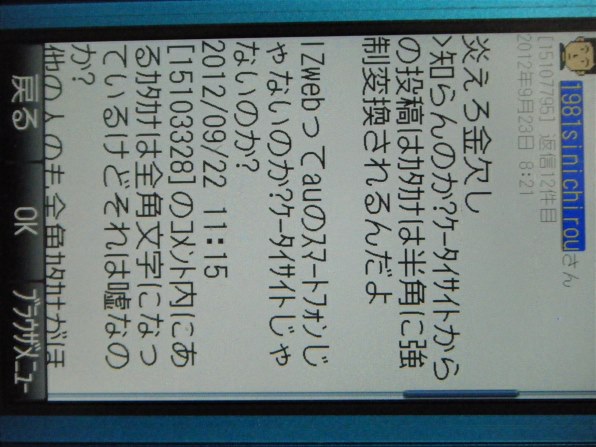 1981sinichirouさん
[15107795] 返信12件目
2012年9月23日 8:21
炎えろ金欠し
>知らんのか?ｹｰﾀｲｻｲﾄから
の投稿はｶﾀｶﾅは半角に強
制変換されるんだよ
IZwebってauのｽﾏｰﾄﾌｫﾝじ
ゃないのか?ｹｰﾀｲｻｲﾄじゃ
ないのか?
2012/09/22 11:15
[15103328]のｺﾒﾝﾄ内にあ
るｶﾀｶﾅは全角文字になっ
ているけどそれは嘘なの
か?
他の人のも全角ｶﾀｶﾅがほ
戻る OK ﾌﾞﾗｳｻﾞﾒﾆｭｰ